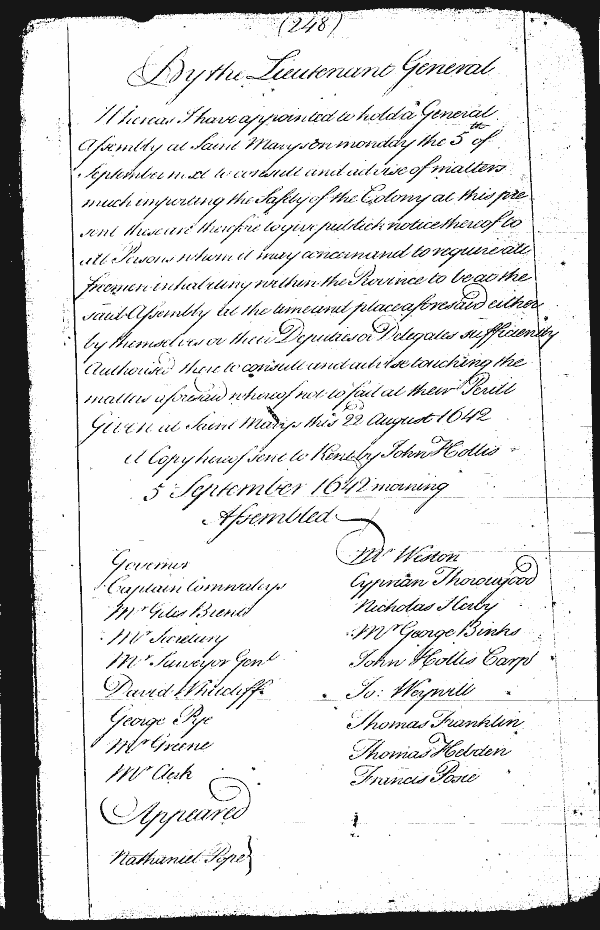 (248)
By the Lieutenant General
Whereas I have appointed to hold a General
Assembly at Saint Marys on monday the 5th of
September next to consult and advise of matters
much importing the Safety of the Colony at this pre
sent these are therefore to give publick notice thereof to
all Persons whom it may concern and to require all
freemen inhabiting within the Province to be at the
said Assembly at the time and place aforesaid either
by themselves or their Deputies or Delegates sufficiently
Authorised there to consult and advise touching the
matters aforesaid whereof not to fail at their Perill
Given at Saint Marys this 22d August 1642
A Copy hereof sent to Kent by John Hollis
5 September 1642 morning
Assembled
Governor
Captain Cornwaleys
Mr Giles Brent
Mr Secretary
Mr Surveyor Genl
David Whitcliff
George Pye
Mr Greene
Mr Clerk
Mr Weston
Cyprian Thorowgood
Nicholas Hervy
Mr George Binks
John Hollis Carpr
Jo: Worpvill
Thomas Franklin
Thomas Hebden
Francis Posie
Appeared
Nathaniel Pope}